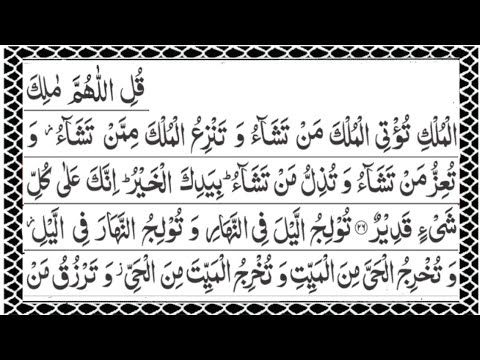 قُلِ اللّٰهُمَّ مٰلِكَ
الْمُلْكِ تُؤْتِی الْمُلْكَ مَنْ تَشَآءُ وَ تَنْزِعُ الْمُلْكَ مِمَّنْ تَشَآءُ٘ وَ
تُعِزُّ مَنْ تَشَآءُ وَ تُذِلُّ مَنْ تَشَآءُؕ بِیَدِكَ الْخَیْرُؕ اِنَّكَ عَلٰی كُلِّ
شَیْءٍ قَدِیْرٌ ۝۲۶ تُوْلِجُ الَّیْلَ فِی النَّهَارِ وَ تُوْلِجُ النَّهَارَ فِی الَّیْلِ٘
وَ تُخْرِجُ الْحَیَّ مِنَ الْمَیِّتِ وَ تُخْرِجُ الْمَیِّتَ مِنَ الْحَیِّ٘ وَ تَرْزُقُ مَنْ